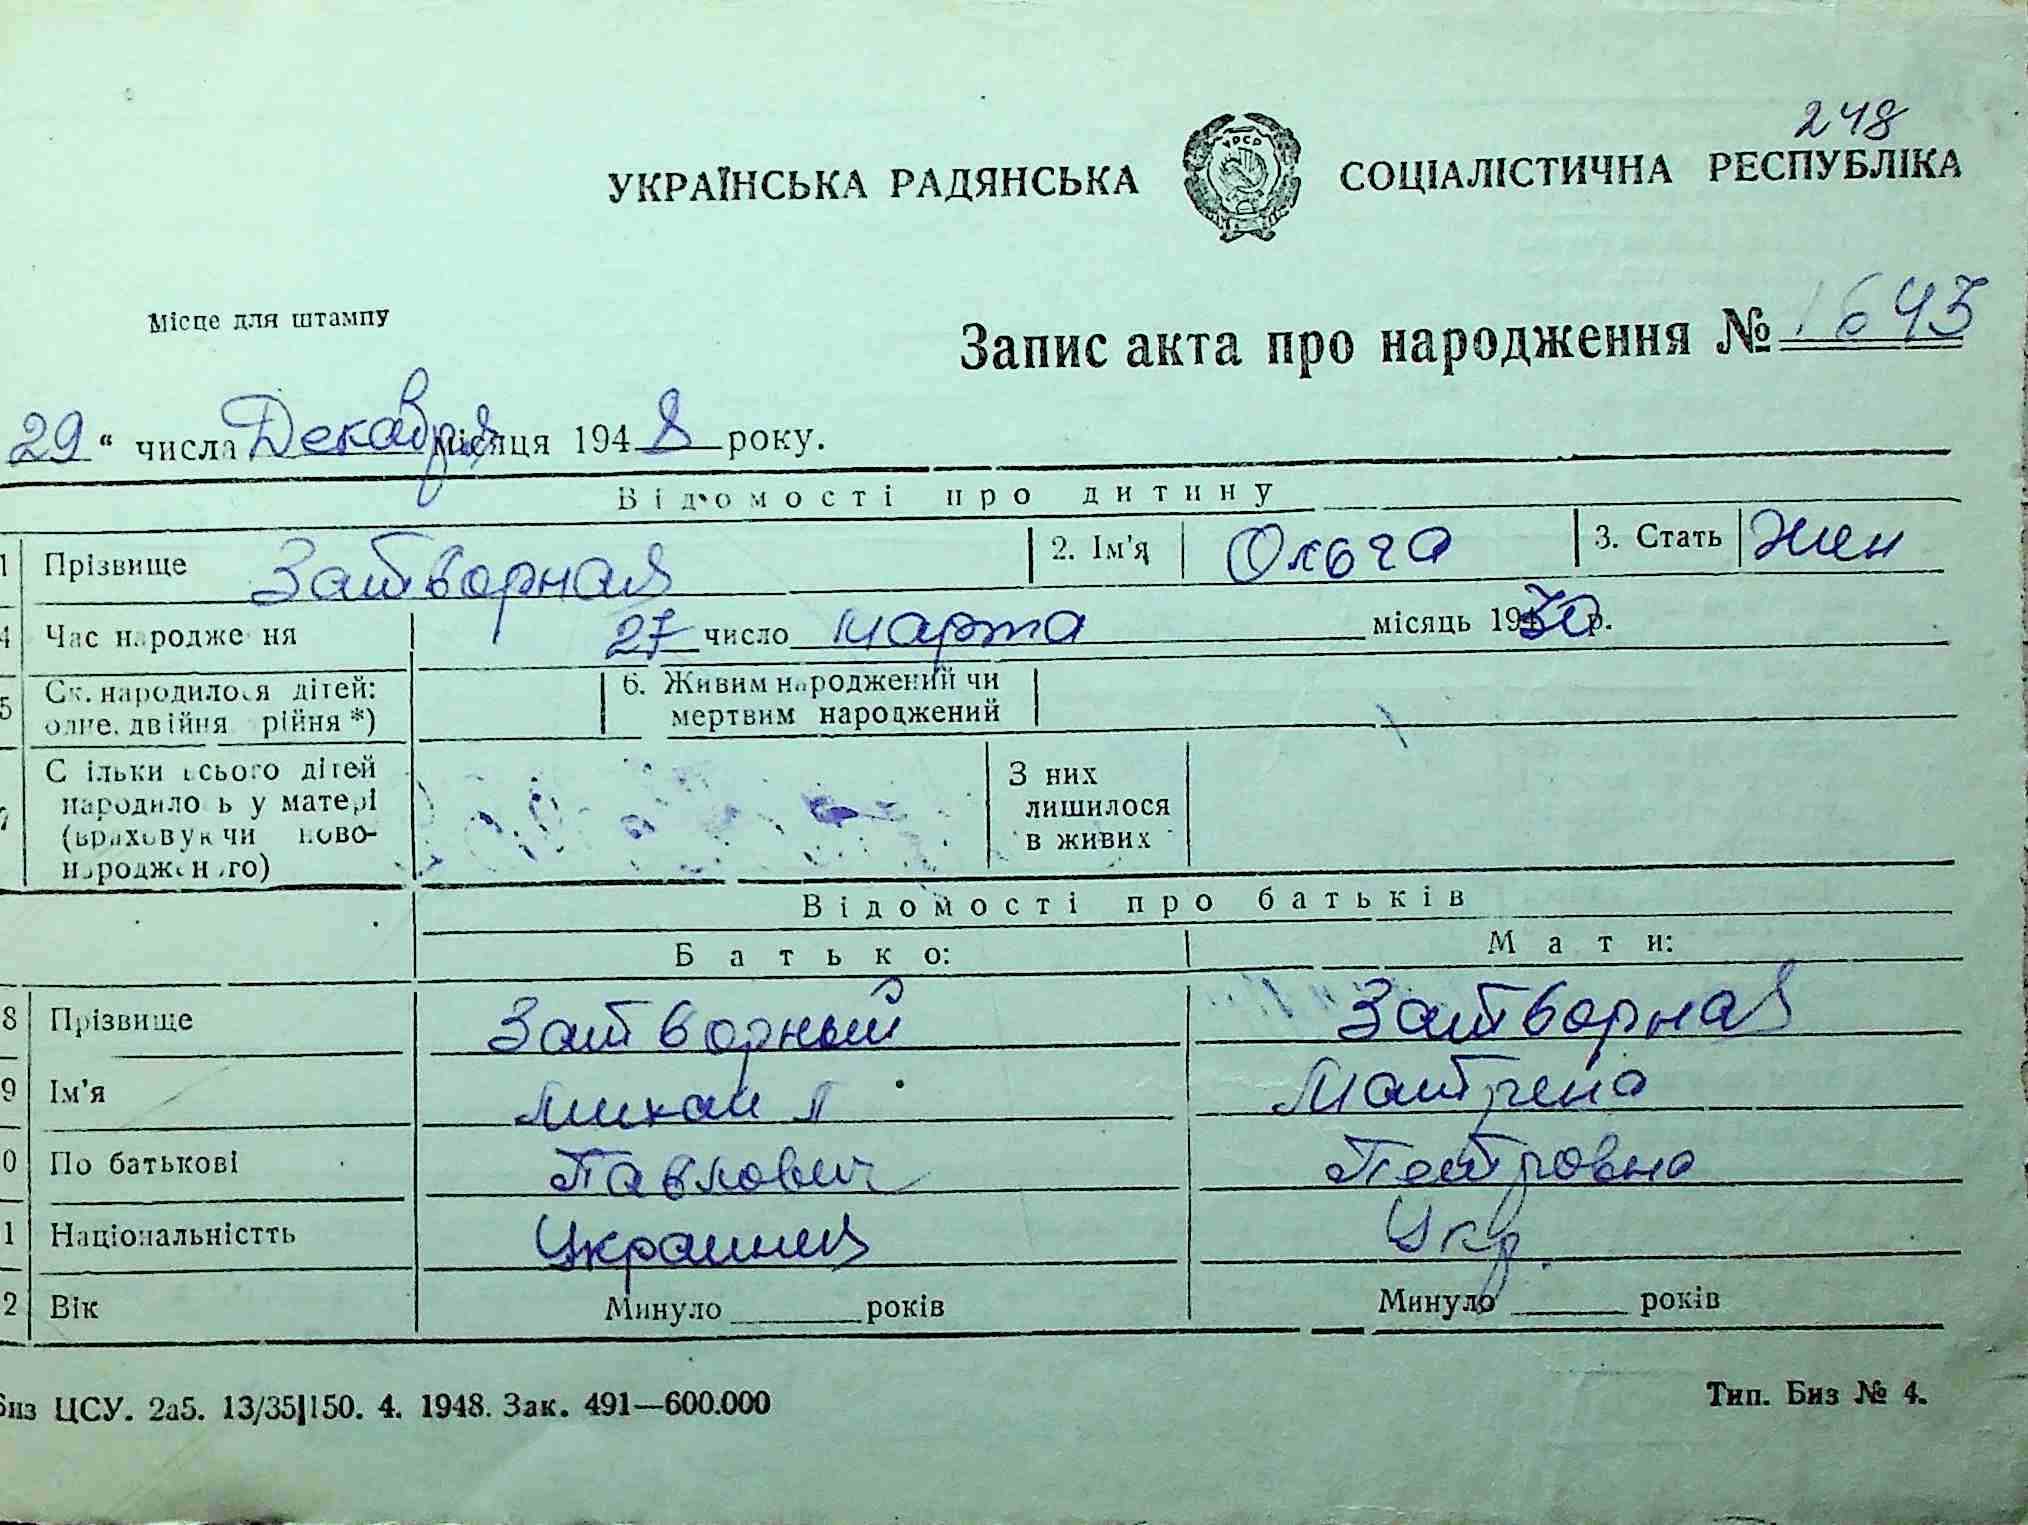 248
УКРАЇНСЬКА РАДЯНСЬКА СОЦІАЛІСТИЧНА РЕСПУБЛІКА
УРСР
Місце для штампу
Запис акта про народження № 1643
29 " числа Декабря місяця 1948 року.
Відомості про дитину
1 Прізвище Затворная 2. Ім'я Ольга 3. Стать жен
4 Час народже ня 27 число марта місяць 1930 р.
5 Ск. народилося дітей: 6. Живим народжений чи
одне, двійня рійня *) мертвим народжений
С ільки всього дітей З них
народило ь у матері лишилося
(враховуючи ново- в живих
народженого)
Відомості про батьків
Батько: Мати:
8 Прізвище Затворный Затворная
9 Ім'я Михаил Матрена
0 По батькові Павлович Петровна
1 Національністть Украинец Укр.
2 Вік Минуло років Минуло років
Биз ЦСУ. 2а5. 13/35|150. 4. 1948. Зак. 491—600.000 Тип. Биз № 4.